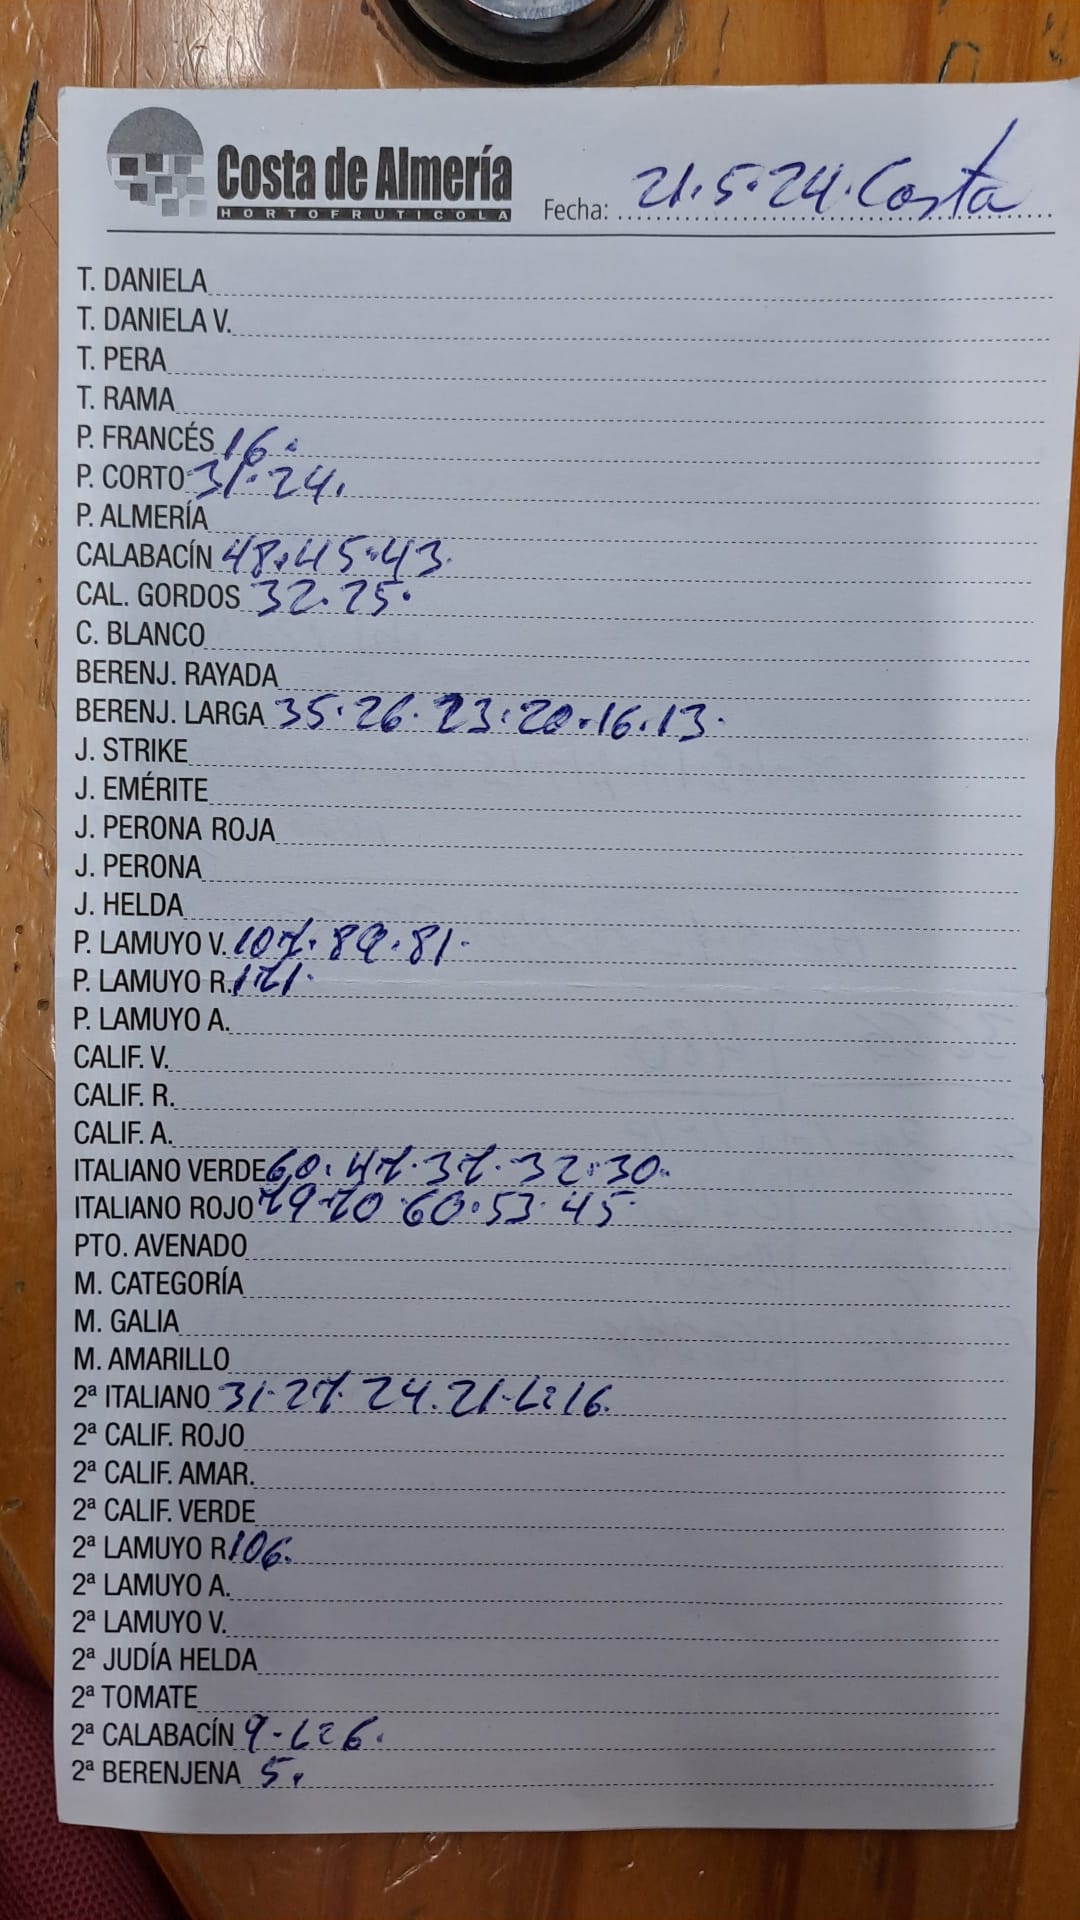 Costa de Almería
HORTOFRUTICOLA
Fecha: 21.5.24. Costa
T. DANIELA
T. DANIELA V.
T. PERA
T. RAMA
P. FRANCÉS 16.
P. CORTO 31.24.
P. ALMERÍA
CALABACÍN 48.45.43.
CAL. GORDOS 32.25.
C. BLANCO
BERENJ. RAYADA
BERENJ. LARGA 35.26.23.20.16.13.
J. STRIKE
J. EMÉRITE
J. PERONA ROJA
J. PERONA
J. HELDA
P. LAMUYO V. 107.89.81.
P. LAMUYO R.
P. LAMUYO A.
CALIF. V.
CALIF. R.
CALIF. A.
ITALIANO VERDE 60.47.37.32.30.
ITALIANO ROJO 79 70 60.53.45
PTO. AVENADO
M. CATEGORÍA
M. GALIA
M. AMARILLO
2ª ITALIANO 31.27.24.21.L=16.
2ª CALIF. ROJO
2ª CALIF. AMAR.
2ª CALIF. VERDE
2ª LAMUYO R 106.
2ª LAMUYO A.
2ª LAMUYO V.
2ª JUDÍA HELDA
2ª TOMATE
2ª CALABACÍN 9-L=6.
2ª BERENJENA 5.